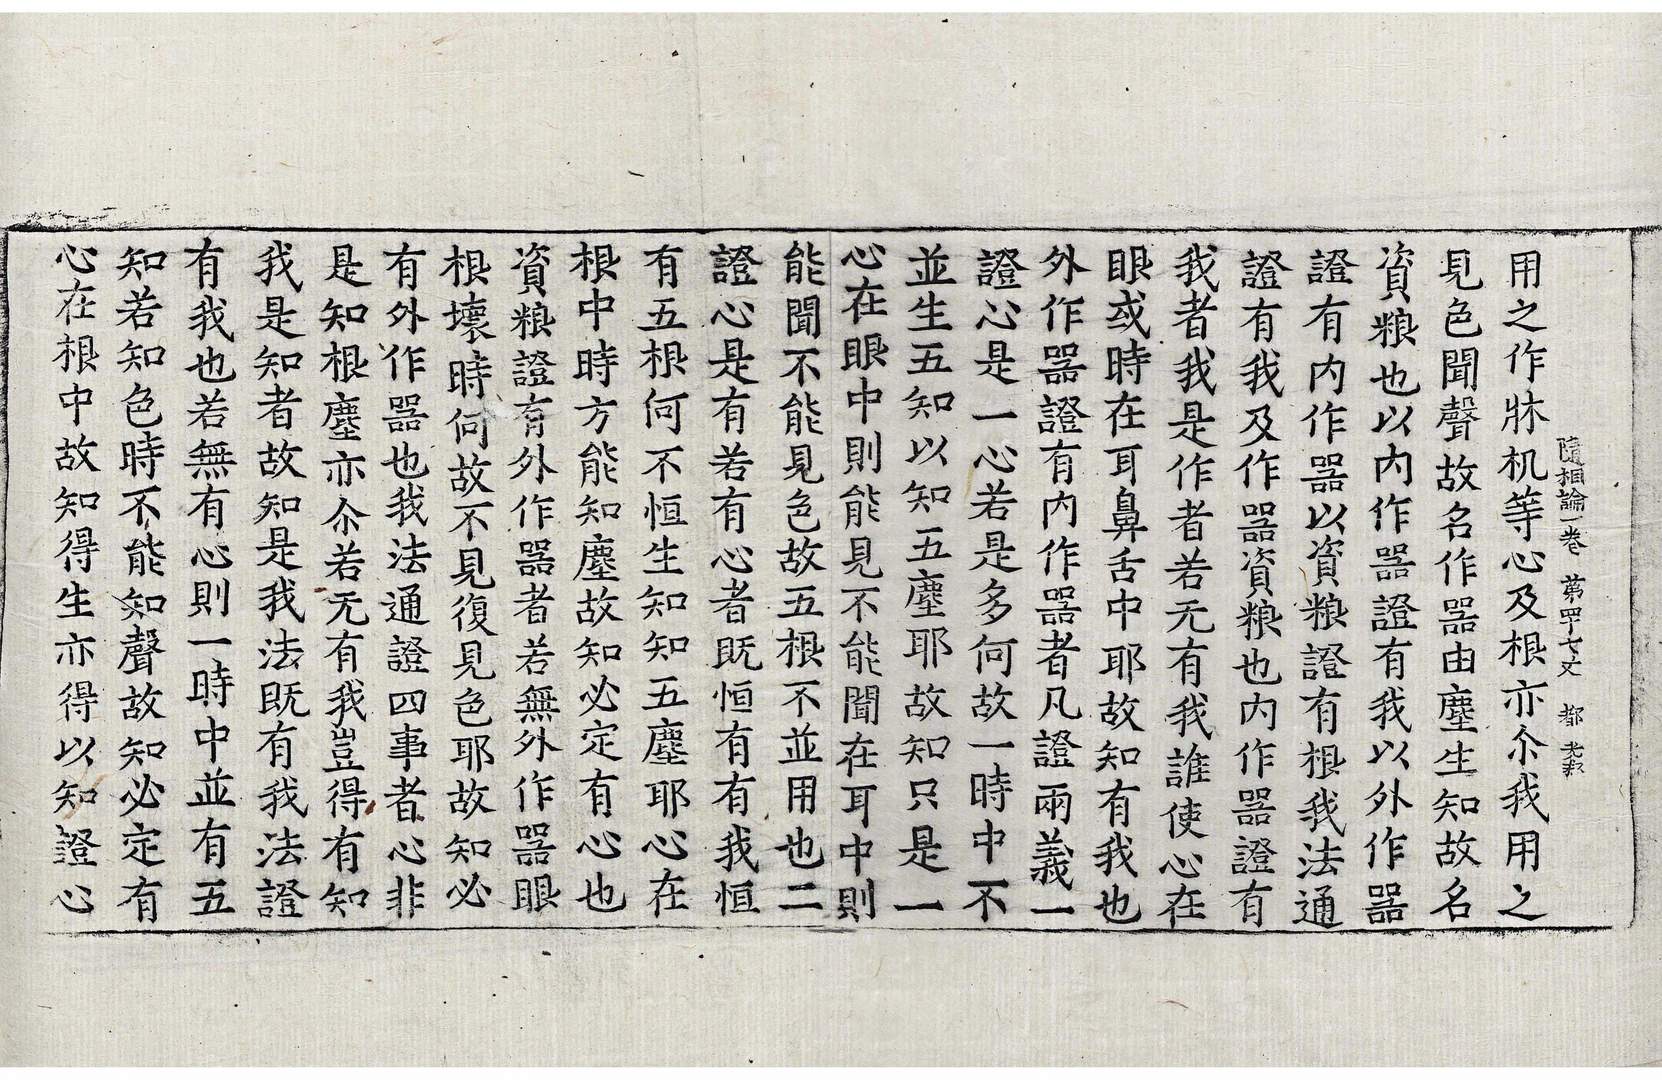 隨相論一卷 第四十七丈 都
用之作牀机等心及根亦尒我用之
見色聞聲故名作器由塵生知故名
資粮也以內作器證有我以外作器
證有內作器以資粮證有根我法通
證有我及作器資粮也內作器證有
我者我是作者若无有我誰使心在
眼或時在耳鼻舌中耶故知有我也
外作器證有內作器者凡證兩義一
證心是一心若是多何故一時中不
並生五知以知五塵耶故知只是一
心在眼中則能見不能聞在耳中則
能聞不能見色故五根不並用也二
證心是有若有心者既恒有有我恒
有五根何不恒生知知五塵耶心在
根中時方能知塵故知必定有心也
資粮證有外作器者若無外作器眼
根壞時何故不見復見色耶故知必
有外作器也我法通證四事者心非
是知根塵亦尒若无有我豈得有知
我是知者故知是我法既有我法證
有我也若無有心則一時中並有五
知若知色時不能知聲故知必定有
心在根中故知得生亦得以知證心